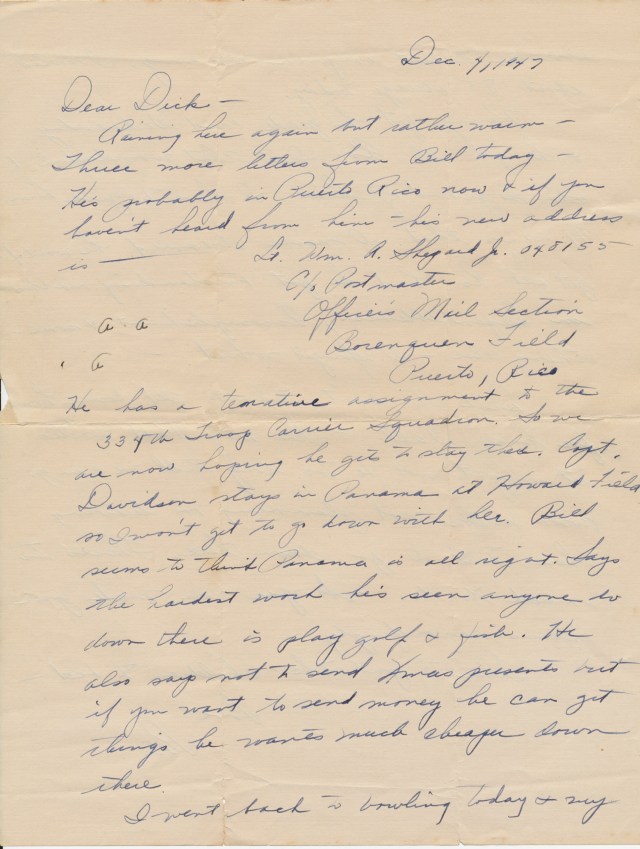 Dec. 4, 1947
Dear Dick —
Raining here again but rather warm —
Three more letters from Bill today —
He's probably in Puerto Rico now & if you
haven't heard from him — his new address
is — Lt. Wm. A. Shepard Jr. 048155
C/o Postmaster
Officer's Mail Section
Borenquen Field
Puerto, Rico
a a
a
He has a tenative assignment to the
334th Troop Carrier Squadron. So we
are now hoping he gets to stay there. Capt.
Davidson stays in Panama at Howard Field
so I won't get to go down with her. Bill
seems to think Panama is all right. Says
the hardest work he's seen anyone do
down there is play golf & fish. He
also says not to send Xmas presents but
if you want to send money he can get
things he wants much cheaper down
there.
I went back to bowling today & my